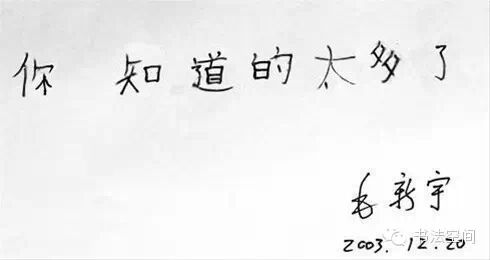 你知道的太多了
毛新宇
2003.12.20
书法空间